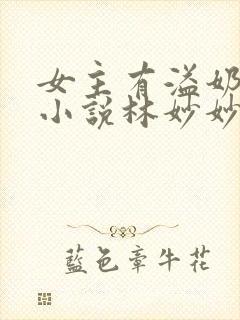 女主有溢奶
小說林妙妙
藍色牽牛花